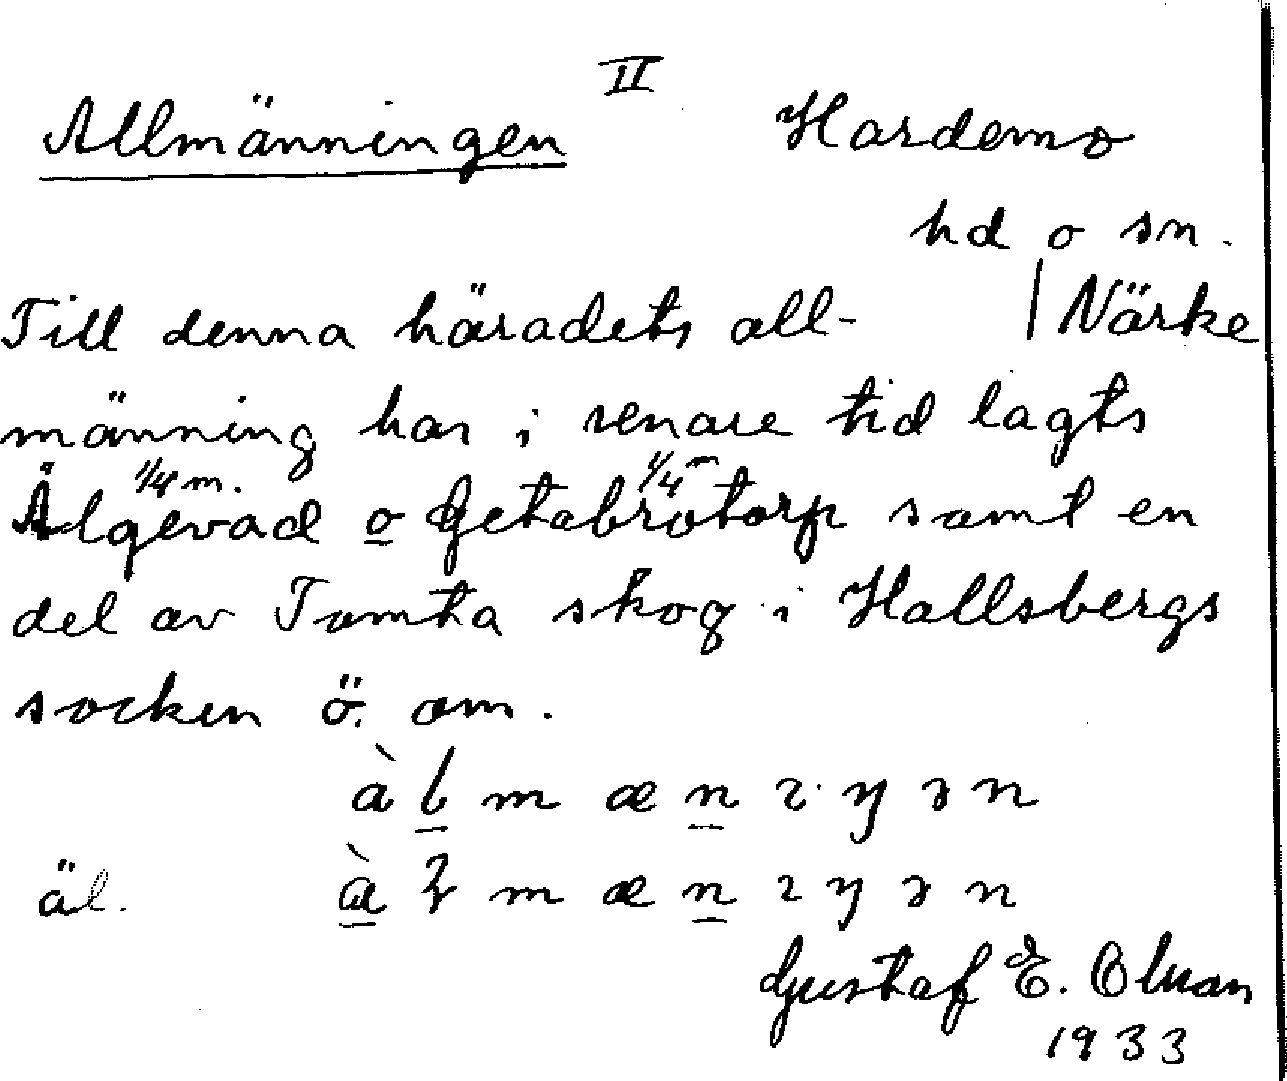 II
Allmänningen Hardemo
hd o sn.
Till denna häradets all- | Närke
männing har i senare tid lagts
1/4 m. 1/4 m
Älgevad o Getabrotorp samt en
del av Tomta skog i Hallsbergs
socken ö. om.
àlmænɿŋən
äl. àmænɿŋən
Gustaf E. Olsson
1933